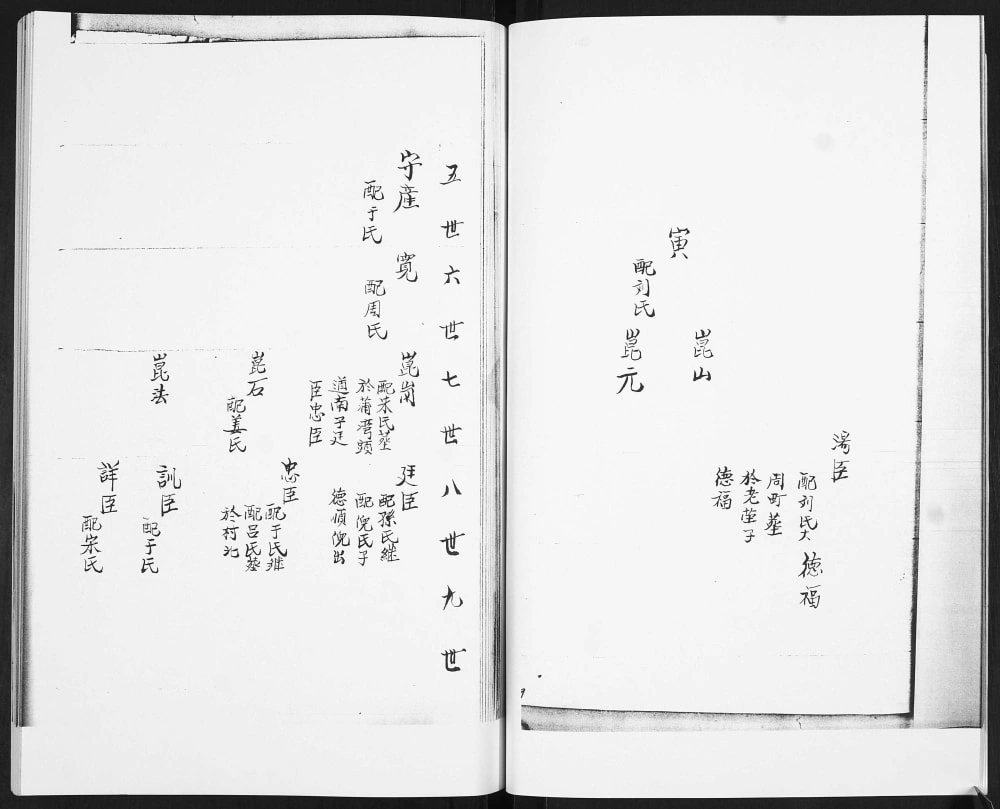 湯臣
配刘氏大
周町塟
於老塋子
德福
德福
崑山
寅
配刘氏
崑元
五世六世七世八世九世
守產
配于氏
寬
配周氏
崑崗
配宋氏塟
於蒲湾頭
道南子廷
臣忠臣
廷臣
配孫氏継
配倪氏子
德順倪出
忠臣
配于氏継
配吕氏塟
於村北
崑石
配姜氏
崑法
訓臣
配于氏
詳臣
配宋氏